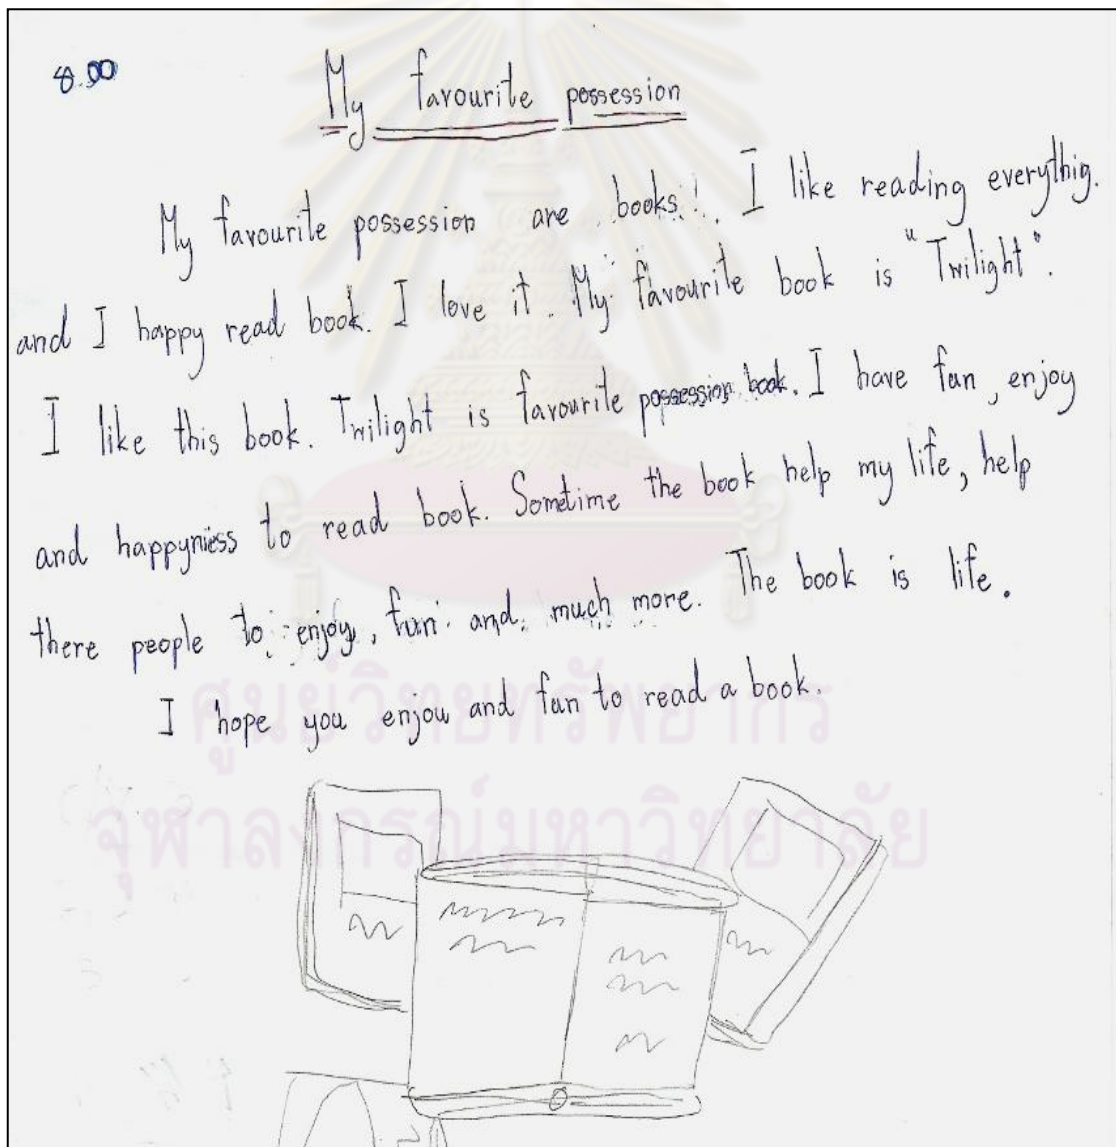 8.00
My favourite possession
My favourite possession are books. I like reading everythig.
and I happy read book. I love it. My favourite book is "Twilight".
I like this book. Twilight is favourite possession book. I have fun, enjoy
and happyniess to read book. Sometime the book help my life, help
there people to enjoy, fun and much more. The book is life.
I hope you enjou and fun to read a book.
ศูนย์วิทยทรัพยากร
จุฬาลงกรณ์มหาวิทยาลัย